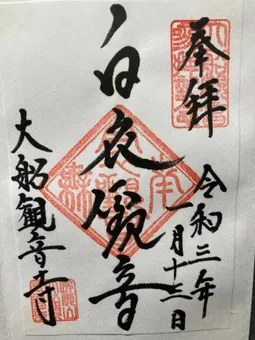 奉拝
令和三年
一月十三日
白衣観音
大船観音寺